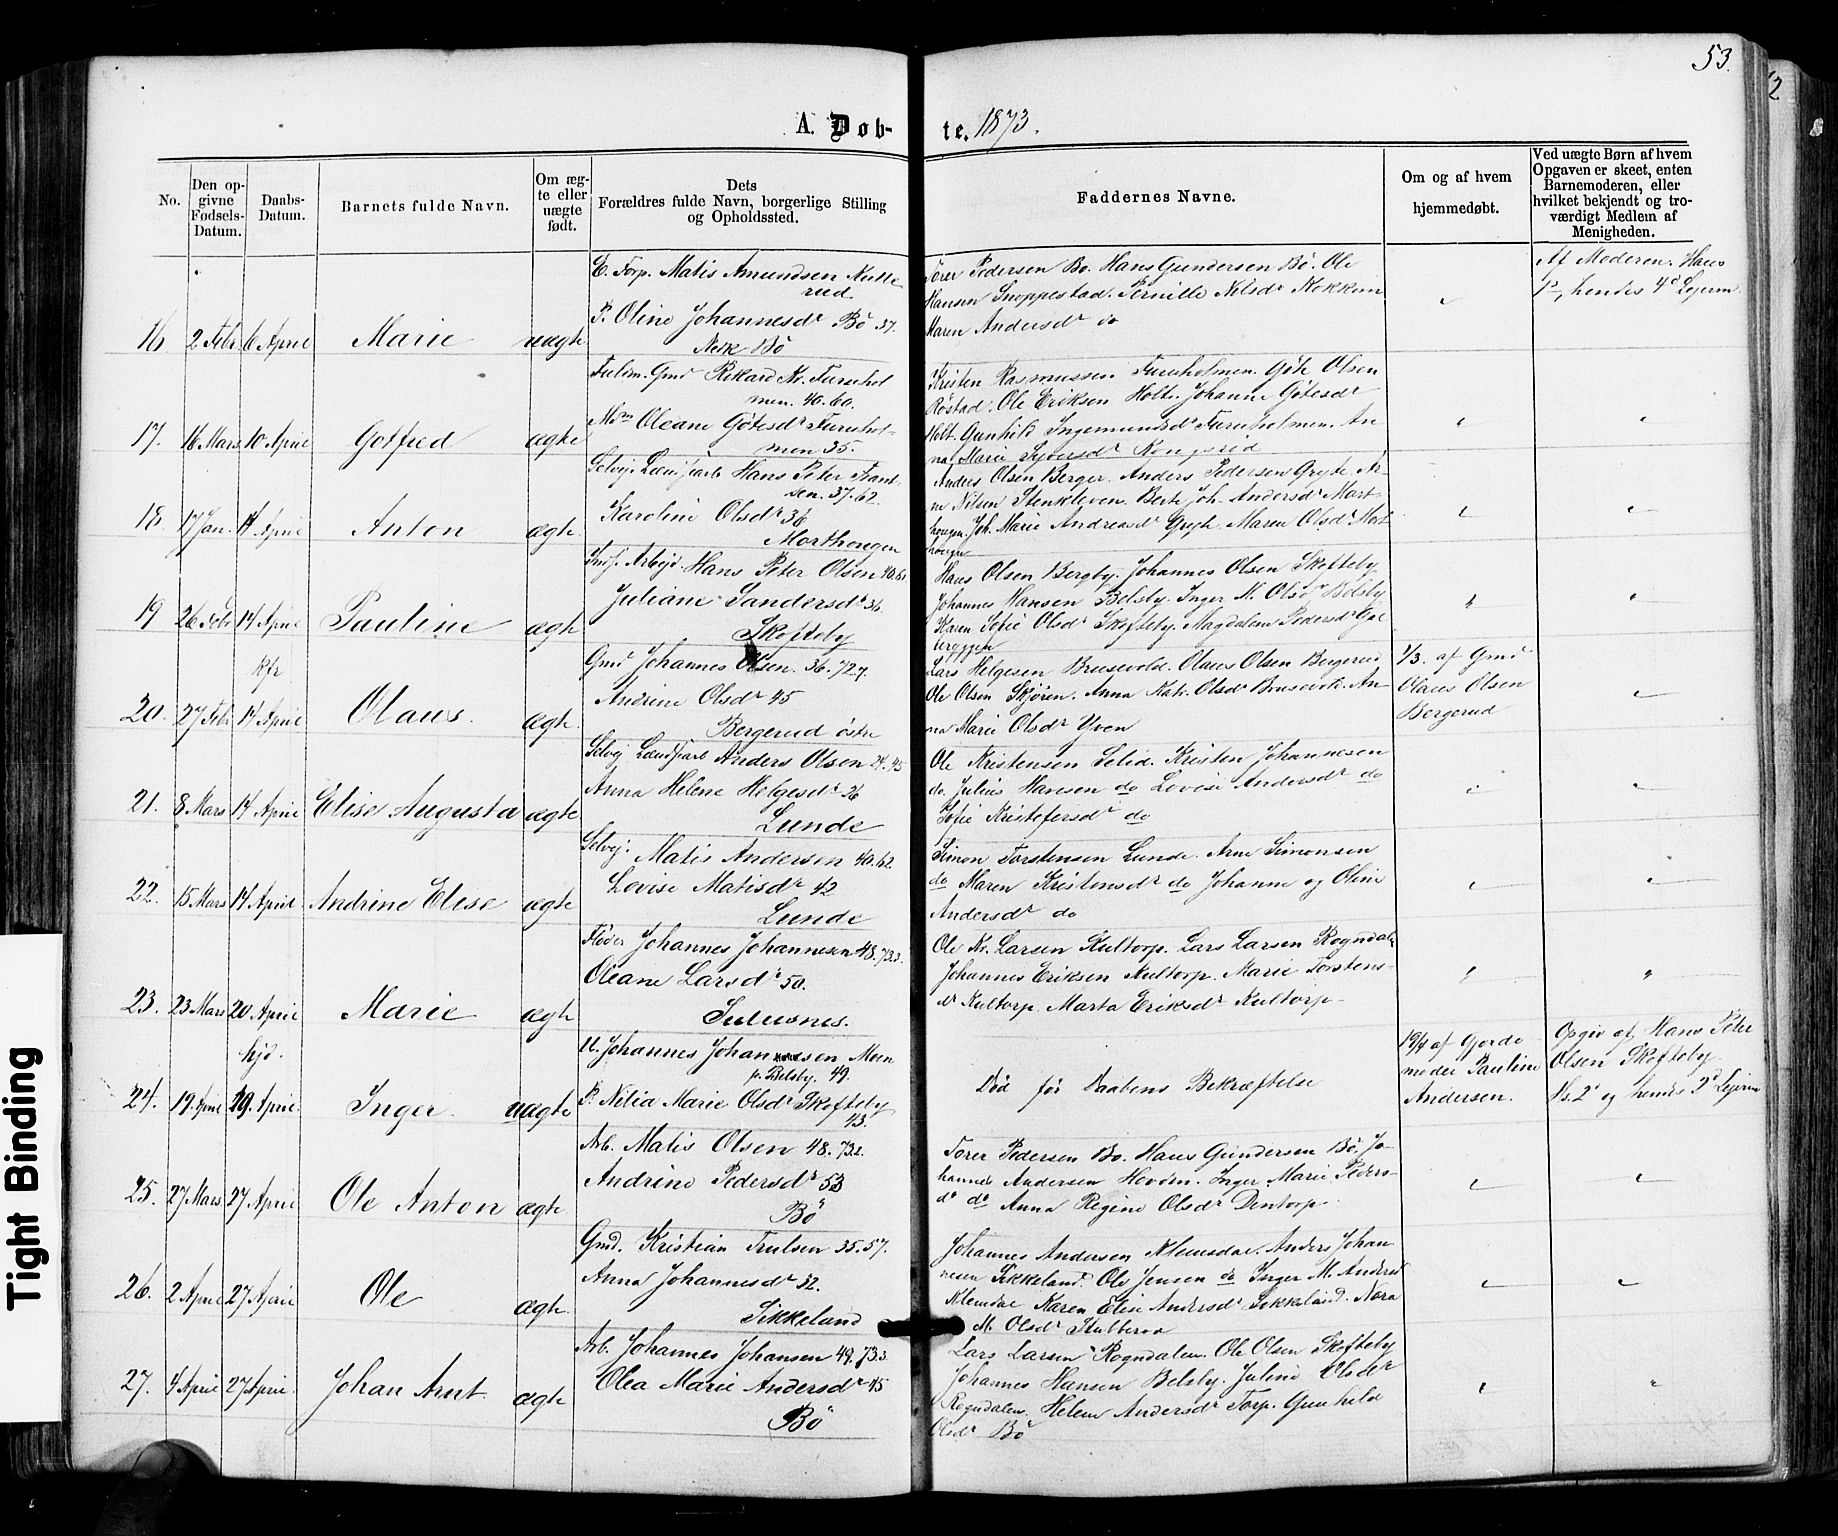 53.
12
A. Døb-
te. 1873.
No.
Den op-
givne
Fødsels-
Datum.
Daabs-
Datum.
Barnets fulde Navn.
Om æg-
te eller
uægte
født.
Dets
Forældres fulde Navn, borgerlige Stilling
og Opholdssted.
Faddernes Navne.
Om og af hvem
hjemmedøbt.
Ved uægte Børn af hvem
Opgaven er skeet, enten
Barnemoderen, eller
hvilket bekjendt og tro-
værdigt Medlem af
Menigheden.
16 2 Febr 6 April Marie uægte
E. Torp. Matis Amundsen
rud.
P. Oline Johannesdr Bö 37.
Bö
Torer Pedersen Bö. Hans Gundersen Bö. Ole
Hansen Snoppestad. Pernille Nilsdr
Maren Andersdr do
Af Moderen. Hans
1ste, hendes 4de Lejerm.
17. 16 Mars 10 April Gotfred ægte
Gmd Rikard Kr. Furuhol
men. 40.60.
Oleane Götesdr Furuhol-
men 35.
Kristen Rasmussen Furuholmen. Göte Olsen
Röstad. Ole Eriksen Holt. Johanne Götesdr
Holt. Gunhild Ingemundsdr Furuholmen. An
na Marie Syversdr Kongsrød
18. 17 Jan. 14 April Anton ægte
Selvej. Landharl Hans Peter Frant-
sen. 37.62.
Karoline Olsdr 36
Morthougen
Andres Olsen Berger. Anders Pedersen Gryte Ar-
ne Nilsen Stenkleven. Berte Joh. Andersdr Mort-
hougen. Joh. Marie Andreasdr Gryte. Maren Olsdr Mort
hougen
19 26 Febr 14 April Pauline ægte
Arbejd. Hans Peter Olsen 40.62
Juliane Sandersdr 36.
Skofteby
Hans Olsen Bergby. Johannes Olsen Skofteby
Johannes Hansen Belsby. Inger M. Olsdr Belsby
Karen Sofie Olsdr Skofteby. Magdalene Pedersdr Gal
terggen
20. 27 Febr kfr 14 April Olaus. ægte
Gmd Johannes Olsen. 36.72.7.
Andrine Olsdr 45
Bergerud östre
Lars Helgesen Brusevold. Olaus Olsen Bergerud
Ole Olsen Skjören. Anna Kat. Olsdr Brusevold. An-
na Marie Olsdr Yven
1/3. af Gmd
Olaus Olsen
Bergerud
21. 8 Mars 14 April Elise Augusta ægte
Selvej Landharl Anders Olsen 24.45
Anna Helene Helgesdr 26
Lunde
Ole Kristensen Selid. Kristen Johannesen
do Julius Hansen do Lovise Andersdr do
Sofie Kristofersdr do
22. 15 Mars 14 April Andrine Elise ægte
Selvej. Matis Andersen 40.62
Lovise Matisdr 42
Lunde
Simon Torstensen Lunde. Arne Simonsen
do Maren Kristensdr do Johanne og Oline
Andersdr do
23. 23 Mars 20 April Marie ægte
Fløder Johannes Johannesen 48.73.3.
Oleane Larsdr 50.
Ole Kr. Larsen Kultorp. Lars Larsen Rogndal.
Johannes Eriksen Kultorp. Marie Torstens-
dr Kultorp. Marta Eriksdr Kultorp-
24. 19 April hjd. 29. April. Inger. uægte
U. Johannes Johannesen Moen
p. Belsby. 49.
P. Nilia Marie Olsdr Skofteby
43.
Død før Daabens Bekræftelse
19/4 af Gjorde-
moder Pauline
Andersen.
Opgiv af, Hans Peter
Olsen Skofteby.
Hs. 2d og hendes 2d Lejerm
25. 27 Mars 27 April Ole Anton ægte
Arb. Matis Olsen 48.73.2.
Andrine Pedersdr 53
Bö
Torer Pedersen Bö. Hans Gundersen Bö. Jo-
hannes Andersen Hovörn. Inger Marie Peders-
dr do Anna Regine Olsdr Dentorp.
26. 2 April 27 April Ole ægte.
Gmd. Kristian Trulsen 35.57.
Anna Johannesdr 32.
Sikkeland
Johannes Andersen Klemsdal. Anders Johan
nesen Sikkeland. Ole Jensen do Inger M. Andersd
Klemsdal Karen Elise Andersdr Sikkeland. Nora
M. Olsdr Stubberød
27. 4 April 27 April. Johan Arnt ægte
Arb. Johannes Johansen 49.73.3
Olea Marie Andersdr 45
Bö
Lars Larsen Rogndalen. Ole Olsen Skofteby
Johannes Hansen Belsby. Juline Olsdr
Rogndalen. Helene Andersdr Torp. Gunhild
Olsdr Bö
Tight Binding